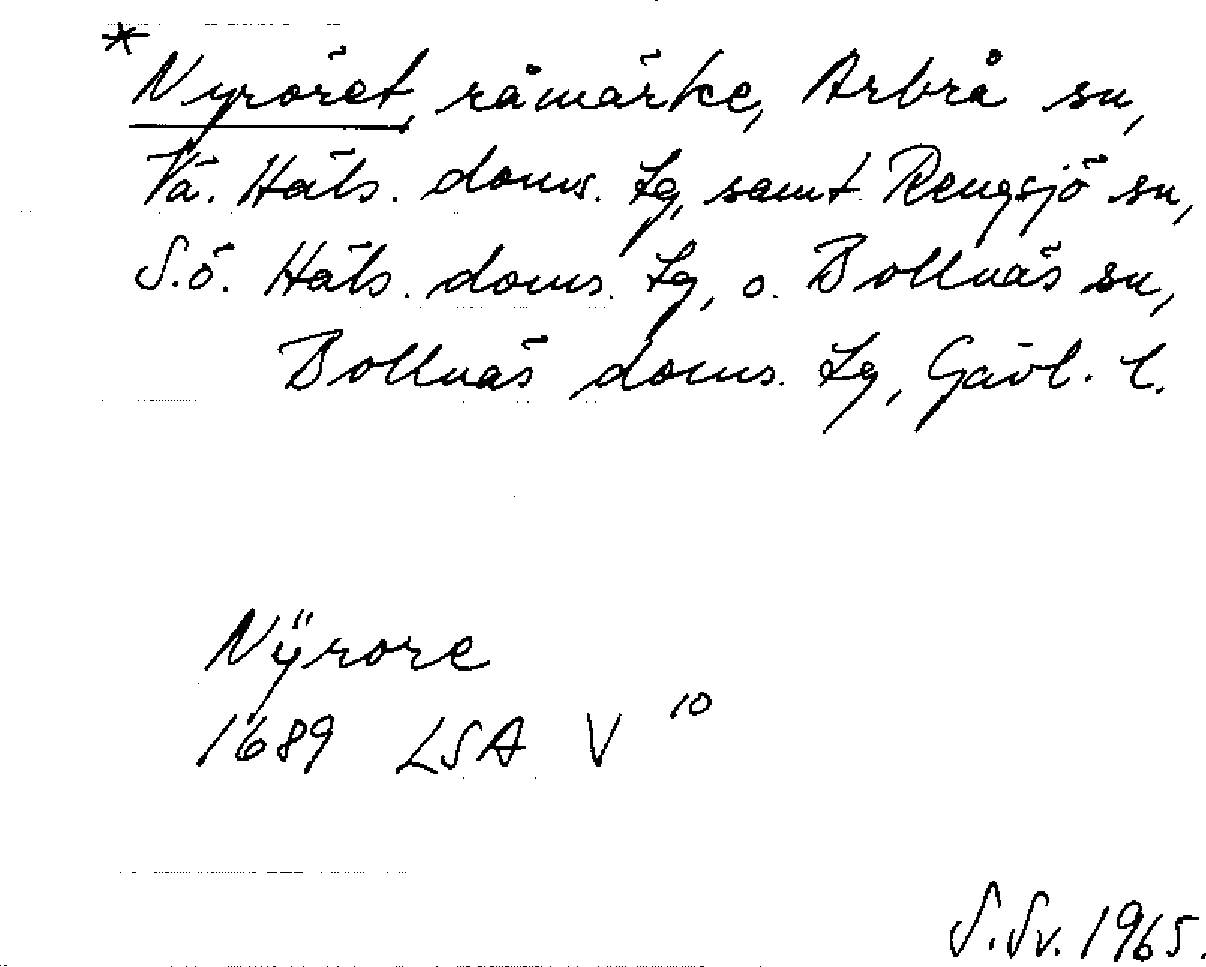 *Nyröret, råmärke, Arbrå sn,
Vä. Häls. doms. tg, samt Rengsjö sn,
S.ö. Häls. doms. tg, o. Bollnäs sn,
Bollnäs doms. tg, Gävl. l.
Nÿrore
1689 LSA V 10
S. Sv. 1965.